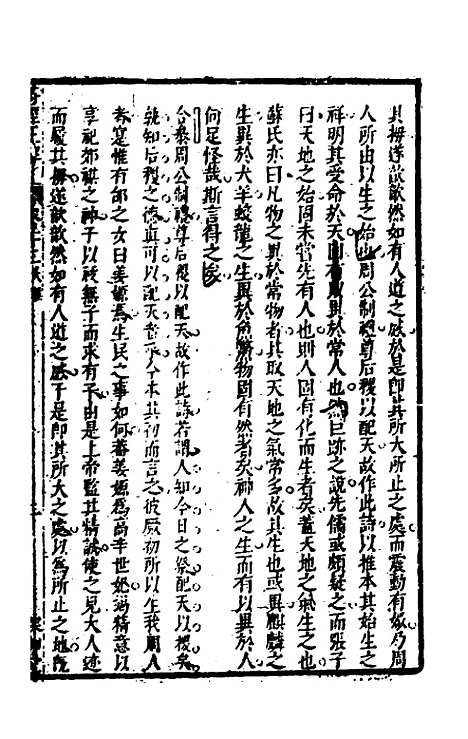 其拇遂歆歆然如有人道之感於是即其所大所止之處而震動有娠乃周
人所由以生之始也周公制禮尊后稷以配天故作此詩以推本其始生之
祥明其受命於天固有異於常人也然巨跡之說先儒或頗疑之而張子
曰天地之始固未嘗先有人也則人固有化而生者矣蓋天地之氣生之也
蘇氏亦曰凡物之異於常物者其取天地之氣常多故其生也或異麒麟之
生異於犬羊蛟龍之生異於魚鱉物固有然者矣神人之生而有以異於人
何足怪哉斯言得之矣
合參周公制禮尊后稷以配天故作此詩若謂人知今日之祭配天以稷矣
孰知后稷之德真可以配天者乎今本其初而言之彼厥初所以生我周人
者寔惟有邰之女曰姜嫄焉生民之事如何蓋姜嫄為高辛世妃竭精意以
享祀郊禖之神子以祓無子而求有子由是上帝監其精誠使之見大人迹
而履其拇遂歆歆然如有人道之感于是即其所大之處以為所止之地既